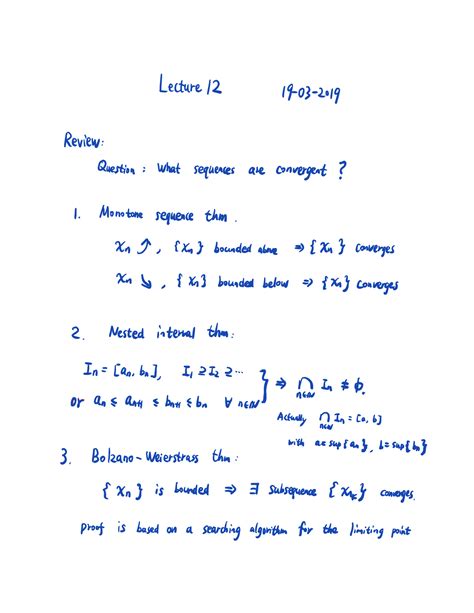 Lecture 12 19-03-2019
Review:
Question : What sequences are convergent ?
1. Monotone sequence thm.
xn ↗, {xn} bounded above ⇒ {xn} converges
xn ↘, {xn} bounded below ⇒ {xn} converges
2. Nested interval thm:
In = [an, bn], I1 ⊇ I2 ⊇ ⋯
or an ≤ an+1 ≤ bn+1 ≤ bn ∀ n∈ℕ } ⇒ ⋂n∈ℕ In ≠ ∅.
Actually ⋂n∈ℕ In = [a, b]
with a = sup{an}, b = sup{bn}
3. Bolzano-Weierstrass thm:
{xn} is bounded ⇒ ∃ subsequence {xnk} converges.
proof is based on a searching algorithm for the limiting point